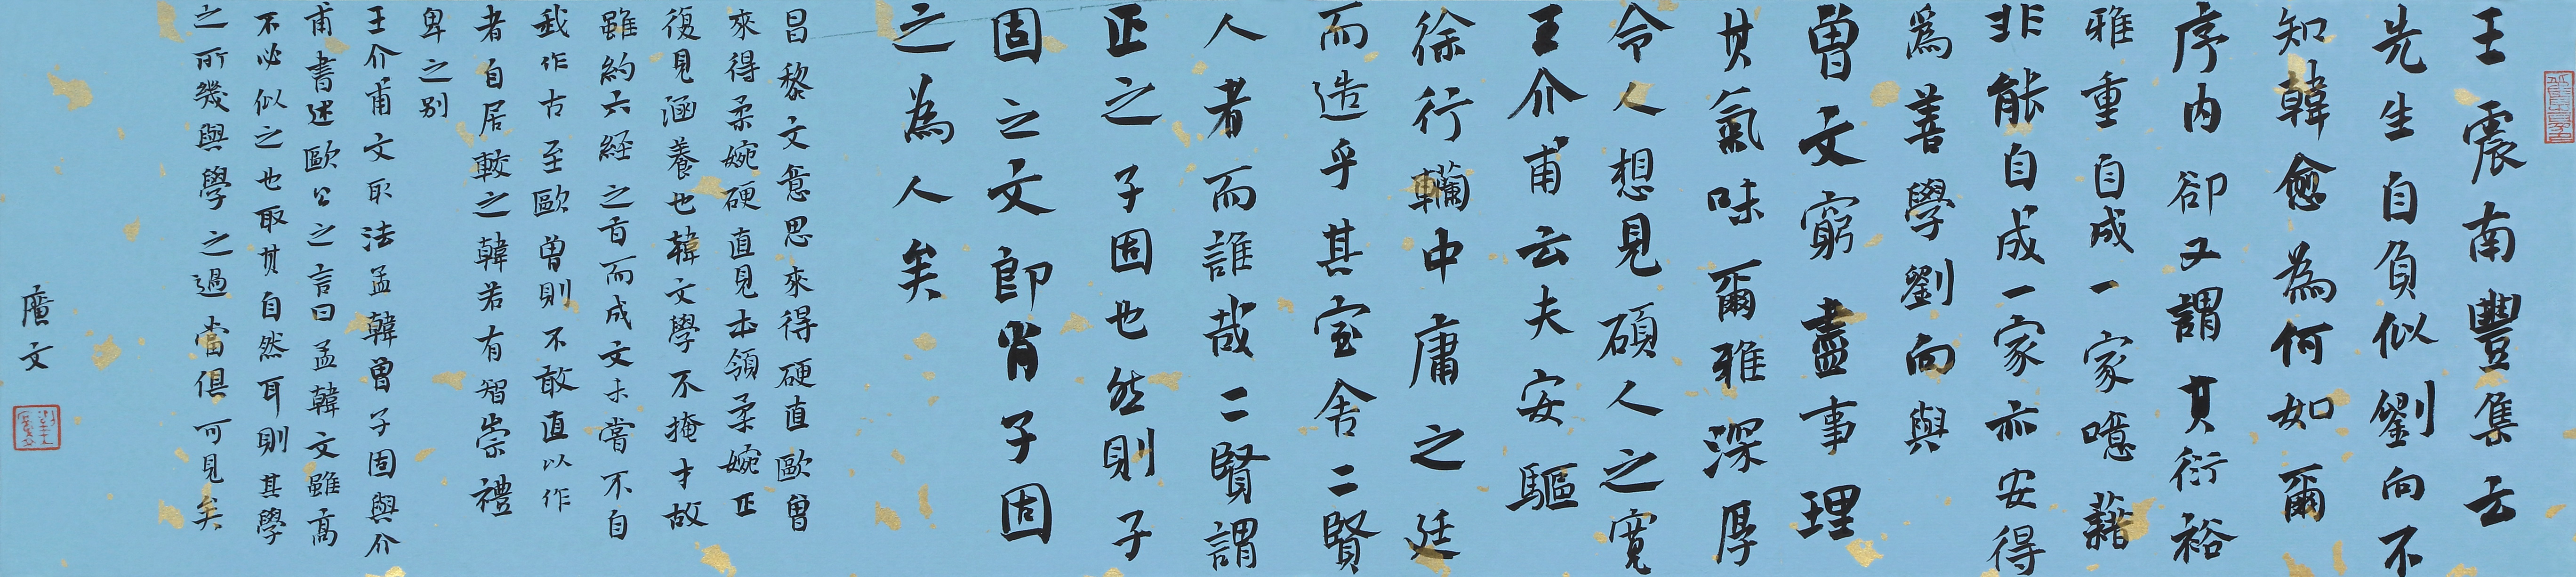 王震南豐集云
先生自負似劉向不
知韓愈為何如爾
序内卻又謂其衍裕
雅重自成一家噫藉
非能自成一家亦安得
爲善學劉向與
曾文窮盡事理
其氣味爾雅深厚
令人想見碩人之寬
王介甫云夫安驅
徐行轥中庸之廷
而造乎其室舍二賢
人者而誰哉二賢謂
正之子固也然則子
固之文即肖子固
之為人矣
昌黎文意思來得硬直歐曾
來得柔婉硬直見本領柔婉正
復見涵養也韓文學不掩才故
雖約六經之旨而成文未嘗不自
我作古至歐曾則不敢直以作
者自居較之韓若有智崇禮
卑之别
王介甫文取法孟韓曾子固與介
甫書述歐公之言曰孟韓文雖高
不必似之也取其自然耳則其學
之所幾與學之過當俱可見矣
廣文